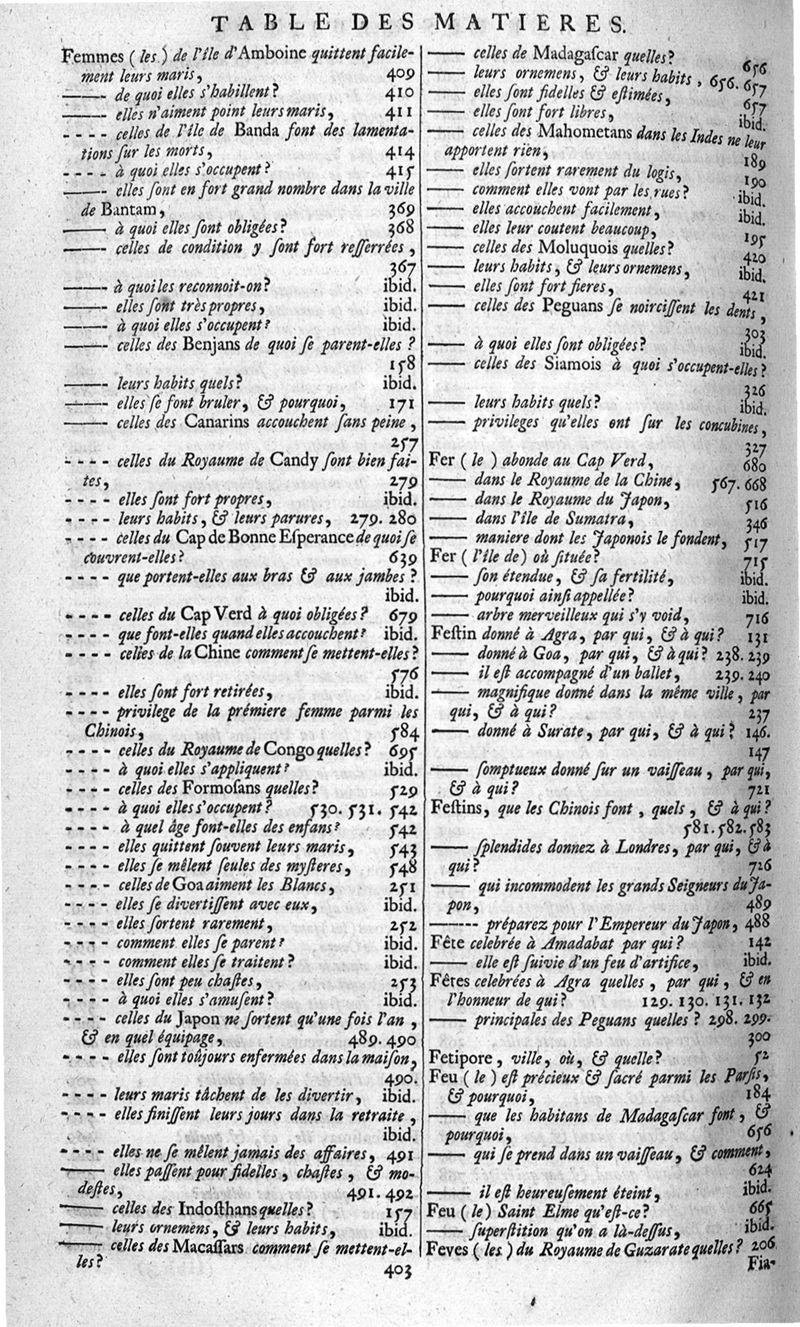 TABLE DES MATIERES.
Femmes (les) de l'île d'Amboine quittent facile-
ment leurs maris, 409
—— de quoi elles s'habillent? 410
—— elles n'aiment point leurs maris, 411
---- celles de l'île de Banda font des lamenta-
tions ſur les morts, 414
---- à quoi elles s'occupent? 415
—— elles ſont en fort grand nombre dans la ville
de Bantam, 369
—— à quoi elles ſont obligées? 368
—— celles de condition y ſont fort reſſerrées,
367
—— à quoi les reconnoit-on? ibid.
—— elles ſont très propres, ibid.
—— à quoi elles s'occupent? ibid.
—— celles des Benjans de quoi ſe parent-elles?
158
—— leurs habits quels? ibid.
—— elles ſe font bruler, & pourquoi, 171
—— celles des Canarins accouchent ſans peine,
257
---- celles du Royaume de Candy ſont bien fai-
tes, 279
---- elles ſont fort propres, ibid.
---- leurs habits, & leurs parures, 279. 280
---- celles du Cap de Bonne Eſperance de quoi ſe
couvrent-elles? 639
---- que portent-elles aux bras & aux jambes?
ibid.
---- celles du Cap Verd à quoi obligées? 679
---- que font-elles quand elles accouchent? ibid.
---- celles de la Chine comment ſe mettent-elles?
576
---- elles ſont fort retirées, ibid.
---- privilege de la prémiere femme parmi les
Chinois, 584
---- celles du Royaume de Congo quelles? 695
---- à quoi elles s'appliquent? ibid.
---- celles des Formoſans quelles? 529
---- à quoi elles s'occupent? 530. 531. 542
---- à quel âge font-elles des enfans? 542
---- elles quittent ſouvent leurs maris, 543
---- elles ſe mêlent ſeules des myſteres, 548
---- celles de Goa aiment les Blancs, 251
---- elles ſe divertiſſent avec eux, ibid.
---- elles ſortent rarement, 252
---- comment elles ſe parent? ibid.
---- comment elles ſe traitent? ibid.
---- elles ſont peu chaſtes, 253
---- à quoi elles s'amuſent? ibid.
---- celles du Japon ne ſortent qu'une fois l'an,
& en quel équipage, 489. 490
---- elles ſont toûjours enfermées dans la maiſon,
490.
---- leurs maris tâchent de les divertir, ibid.
---- elles finiſſent leurs jours dans la retraite,
ibid.
---- elles ne ſe mêlent jamais des affaires, 491
—— elles paſſent pour fidelles, chaſtes, & mo-
deſtes, 491. 492
—— celles des Indoſthans quelles? 157
—— leurs ornemens, & leurs habits, ibid.
—— celles des Macaſſars comment ſe mettent-el-
les? 403
—— celles de Madagaſcar quelles? 656
—— leurs ornemens, & leurs habits, 656. 657
—— elles ſont fidelles & eſtimées, 657
—— elles ſont fort libres, ibid.
—— celles des Mahometans dans les Indes ne leur
apportent rien, 189
—— elles ſortent rarement du logis, 190
—— comment elles vont par les rues? ibid.
—— elles accouchent facilement, ibid.
—— elles leur coutent beaucoup, 195
—— celles des Moluquois quelles? 420
—— leurs habits, & leurs ornemens, ibid.
—— elles ſont fort fieres, 421
—— celles des Peguans ſe noirciſſent les dents,
303
—— à quoi elles ſont obligées? ibid.
—— celles des Siamois à quoi s'occupent-elles?
326
—— leurs habits quels? ibid.
—— privileges qu'elles ont ſur les concubines,
327
Fer (le) abonde au Cap Verd, 680
—— dans le Royaume de la Chine, 567. 668
—— dans le Royaume du Japon, 516
—— dans l'île de Sumatra, 346
—— maniere dont les Japonois le fondent, 517
Fer (l'île de) où ſituée? 715
—— ſon étendue, & ſa fertilité, ibid.
—— pourquoi ainſi appellée? ibid.
—— arbre merveilleux qui s'y void, 716
Feſtin donné à Agra, par qui, & à qui? 131
—— donné à Goa, par qui, & à qui? 238. 239
—— il eſt accompagné d'un ballet, 239. 240
—— magnifique donné dans la même ville, par
qui, & à qui? 237
—— donné à Surate, par qui, & à qui? 146.
147
—— ſomptueux donné ſur un vaiſſeau, par qui,
& à qui? 721
Feſtins, que les Chinois font, quels, & à qui?
581. 582. 583
—— ſplendides donnez à Londres, par qui, & à
qui? 726
—— qui incommodent les grands Seigneurs du Ja-
pon, 489
---- préparez pour l'Empereur du Japon, 488
Fête celebrée à Amadabat par qui? 142
—— elle eſt ſuivie d'un feu d'artifice, ibid.
Fêtes celebrées à Agra quelles, par qui, & en
l'honneur de qui? 129. 130. 131. 132
—— principales des Peguans quelles? 298. 299.
300
Fetipore, ville, où, & quelle? 52
Feu (le) eſt précieux & ſacré parmi les Parſis,
& pourquoi, 184
—— que les habitans de Madagaſcar font, &
pourquoi, 656
—— qui ſe prend dans un vaiſſeau, & comment,
624
—— il eſt heureuſement éteint, ibid.
Feu (le) Saint Elme qu'eſt-ce? 665
—— ſuperſtition qu'on a là-deſſus, ibid.
Feves (les) du Royaume de Guzarate quelles? 206
Fia-